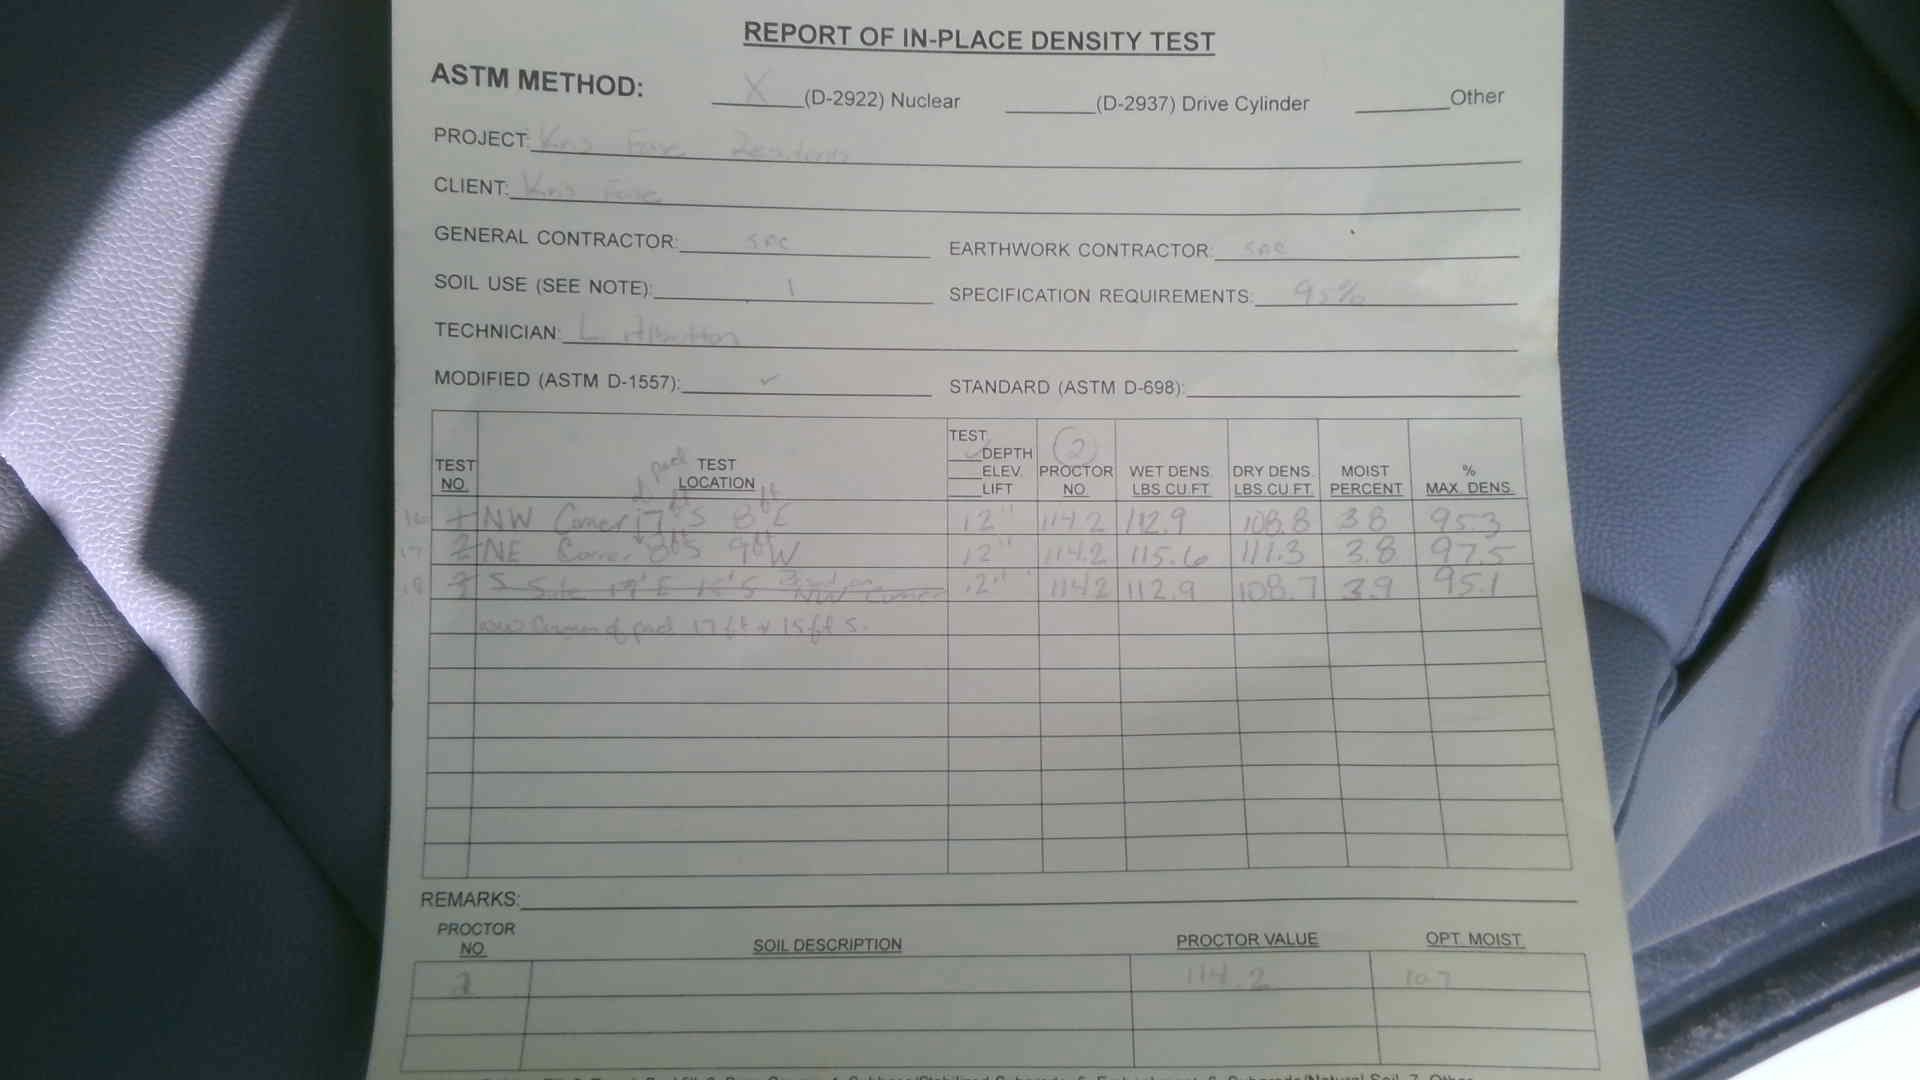 REPORT OF IN-PLACE DENSITY TEST
ASTM METHOD: X (D-2922) Nuclear (D-2937) Drive Cylinder Other
PROJECT: Kris
CLIENT: Kris
GENERAL CONTRACTOR: EARTHWORK CONTRACTOR:
SOIL USE (SEE NOTE): 1 SPECIFICATION REQUIREMENTS: 95%
TECHNICIAN: L.
MODIFIED (ASTM D-1557): ✓ STANDARD (ASTM D-698):
TEST NO. TEST LOCATION TEST DEPTH ELEV. LIFT PROCTOR NO. WET DENS. LBS.CU.FT. DRY DENS. LBS.CU.FT. MOIST PERCENT % MAX. DENS.
of pad 2
16 NW Corner 7ft S 8ft E 12" 114.2 112.9 108.8 3.8 95.3
17 NE Corner 8ft S 9ft W 12" 114.2 115.6 111.3 3.8 97.5
18 S Side NW Corner 12" 114.2 112.9 108.7 3.9 95.1
Corner of pad 17 ft 15 ft S.
REMARKS:
PROCTOR NO. SOIL DESCRIPTION PROCTOR VALUE OPT. MOIST.
2 114.2 10.7